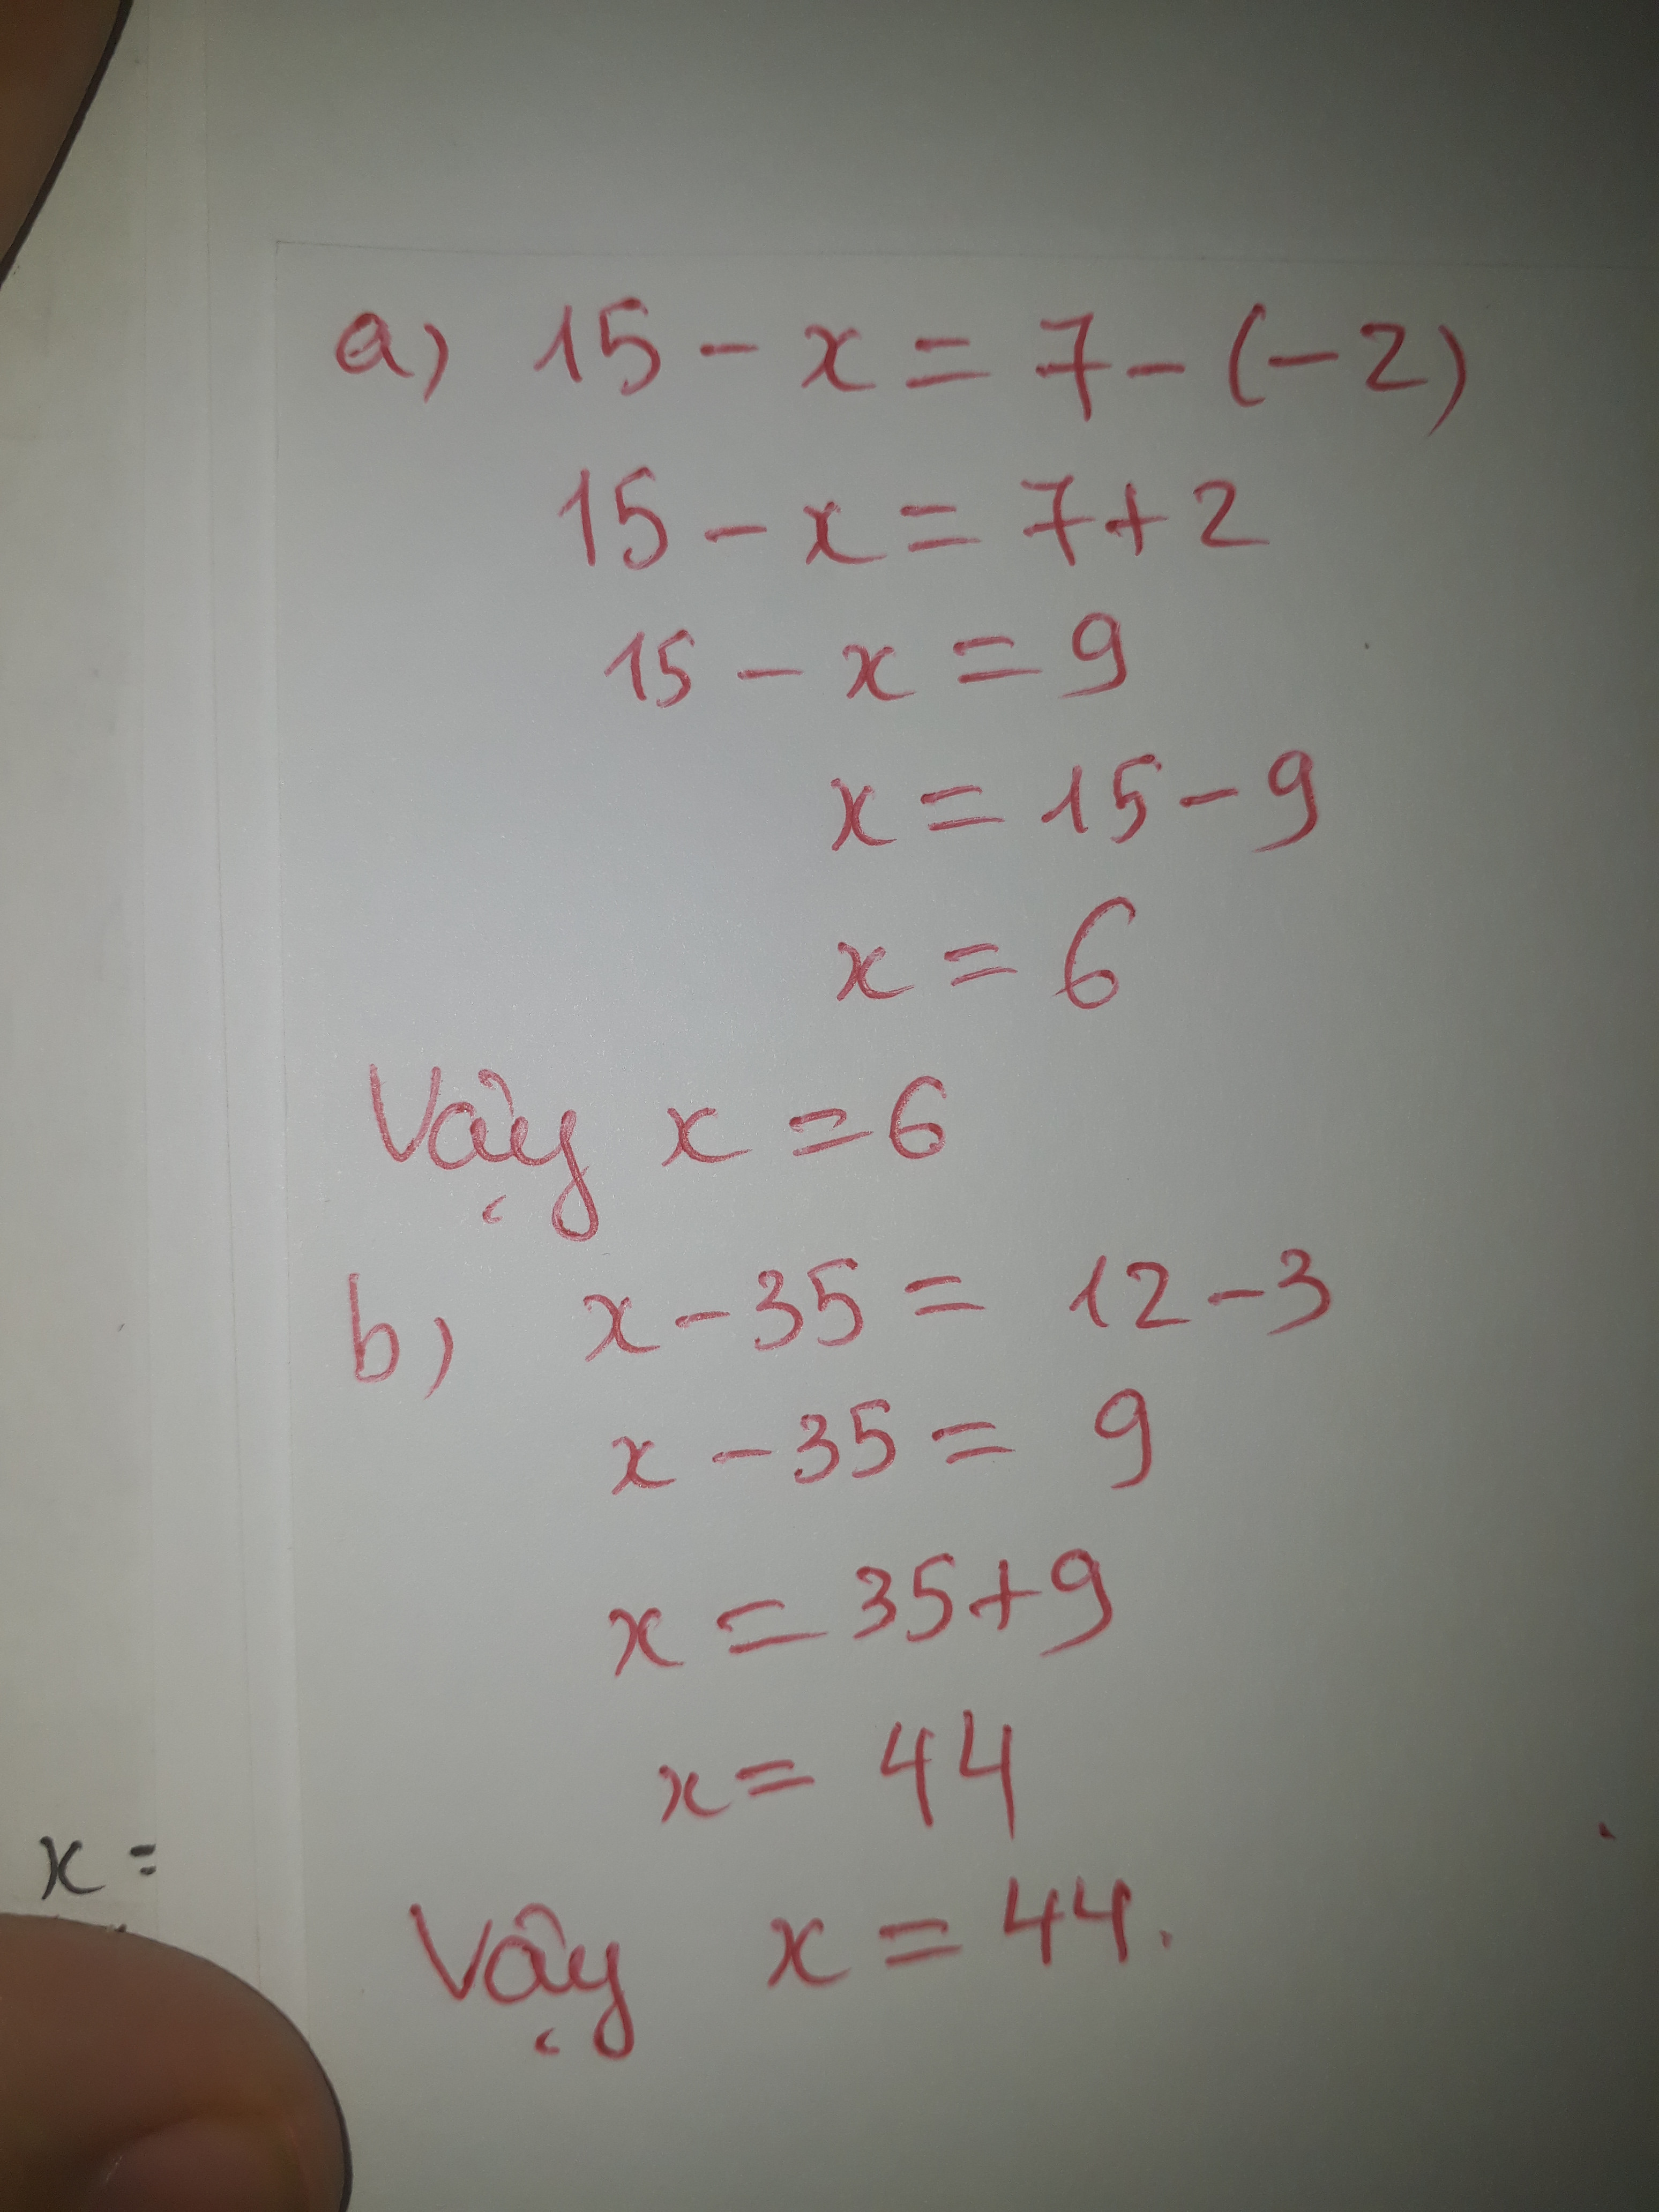 a) 15 - x = 7 - (-2)
15 - x = 7 + 2
15 - x = 9
x = 15 - 9
x = 6
Vậy x = 6
b) x - 35 = 12 - 3
x - 35 = 9
x = 35 + 9
x = 44
x =
Vậy x = 44.